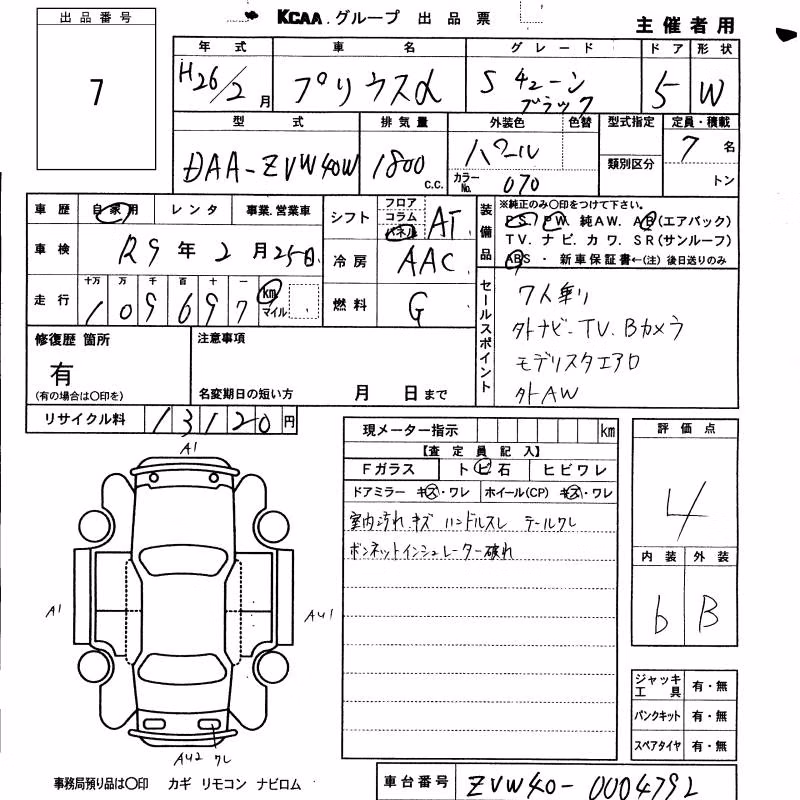 KCAA.グループ 出品票
主催者用
出品番号
7
年式 車名 グレード ドア 形状
H26/2月 プリウスα S チューン ブラック 5 W
型式 排気量 外装色 色替 型式指定 定員・積載
DAA-ZVW40W 1800 c.c. パール 7名
カラーNo. 070 類別区分 トン
車歴 自家用 レンタ 事業.営業車
シフト フロア コラム パネル AT
装備品 ※純正のみ○印をつけて下さい。
P.S. P.W. 純AW. AB(エアバック)
TV. ナビ. カワ. SR(サンルーフ)
ABS ・ 新車保証書←(注) 後日送りのみ
車検 R9年2月25日
冷房 AAC
走行 十万 万 千 百 十 一
109697 km マイル
燃料 G
セールスポイント
7人乗り
外ナビ・TV.Bカメラ
モデリスタエアロ
外AW
修復歴 箇所
有
(有の場合は○印を)
注意事項
名変期日の短い方 月 日まで
リサイクル料 13120円
現メーター指示 km
【査定員記入】
Fガラス トビ石 ヒビワレ
ドアミラー キズ・ワレ ホイール(CP) キズ・ワレ
室内汚れ キズ ハンドルスレ テールワレ
ボンネットインシュレーター破れ
評価点
4
内装 外装
b B
A1
A1
AU1
AU2 ワレ
ジャッキ工具 有・無
パンクキット 有・無
スペアタイヤ 有・無
事務局預り品は○印 カギ リモコン ナビロム
車台番号 ZVW40-0004792